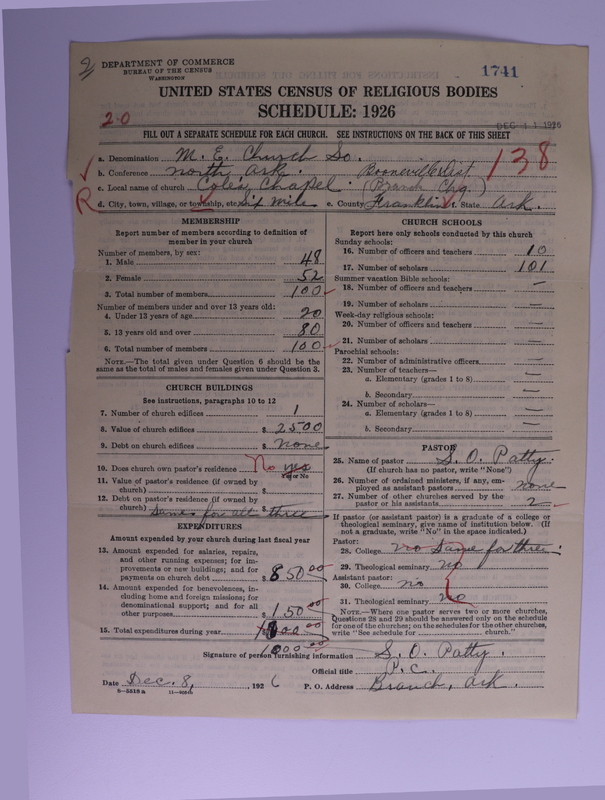 2
DEPARTMENT OF COMMERCE
BUREAU OF THE CENSUS
WASHINGTON
1741
UNITED STATES CENSUS OF RELIGIOUS BODIES
SCHEDULE: 1926
20
DEC 11 1926
FILL OUT A SEPARATE SCHEDULE FOR EACH CHURCH. SEE INSTRUCTIONS ON THE BACK OF THIS SHEET
138
a. Denomination M. E. Church So.
b. Conference North Ark. Booneville Dist
c. Local name of church Coles Chapel (Branch Chg.)
R
d. City, town, village, or township, etc. Six Mile e. County Franklin State Ark.
MEMBERSHIP
Report number of members according to definition of
member in your church
Number of members, by sex:
1. Male 48
2. Female 52
3. Total number of members 100
Number of members under and over 13 years old:
4. Under 13 years of age 20
5. 13 years old and over 80
6. Total number of members 100
NOTE.—The total given under Question 6 should be the
same as the total of males and females given under Question 3.
CHURCH BUILDINGS
See instructions, paragraphs 10 to 12
7. Number of church edifices 1
8. Value of church edifices $ 2500
9. Debt on church edifices $ None
10. Does church own pastor's residence No yes
Yes or No
11. Value of pastor's residence (if owned by
church) $
12. Debt on pastor's residence (if owned by
church) $
Same for all three
EXPENDITURES
Amount expended by your church during last fiscal year
13. Amount expended for salaries, repairs,
and other running expenses; for im-
provements or new buildings; and for
payments on church debt $ 850 00
14. Amount expended for benevolences, in-
cluding home and foreign missions; for
denominational support; and for all
other purposes $ 150 00
15. Total expenditures during year $
CHURCH SCHOOLS
Report here only schools conducted by this church
Sunday schools:
16. Number of officers and teachers 10
17. Number of scholars 101
Summer vacation Bible schools:
18. Number of officers and teachers —
19. Number of scholars —
Week-day religious schools:
20. Number of officers and teachers —
21. Number of scholars —
Parochial schools:
22. Number of administrative officers —
23. Number of teachers—
a. Elementary (grades 1 to 8) —
b. Secondary —
24. Number of scholars—
a. Elementary (grades 1 to 8) —
b. Secondary —
PASTOR
25. Name of pastor S. O. Patty.
(If church has no pastor, write "None")
26. Number of ordained ministers, if any, em-
ployed as assistant pastors none
27. Number of other churches served by the
pastor or his assistants 2
If pastor (or assistant pastor) is a graduate of a college or
theological seminary, give name of institution below. (If
not a graduate, write "No" in the space indicated.)
Pastor:
28. College no Same for three
29. Theological seminary no
Assistant pastor:
30. College no
31. Theological seminary no
NOTE.—Where one pastor serves two or more churches,
Questions 28 and 29 should be answered only on the schedule
for one of the churches; on the schedules for the other churches,
write "See schedule for church."
Signature of person furnishing information S. O. Patty.
Official title P. C.
Date Dec. 8, 1926 P. O. Address Branch, Ark.